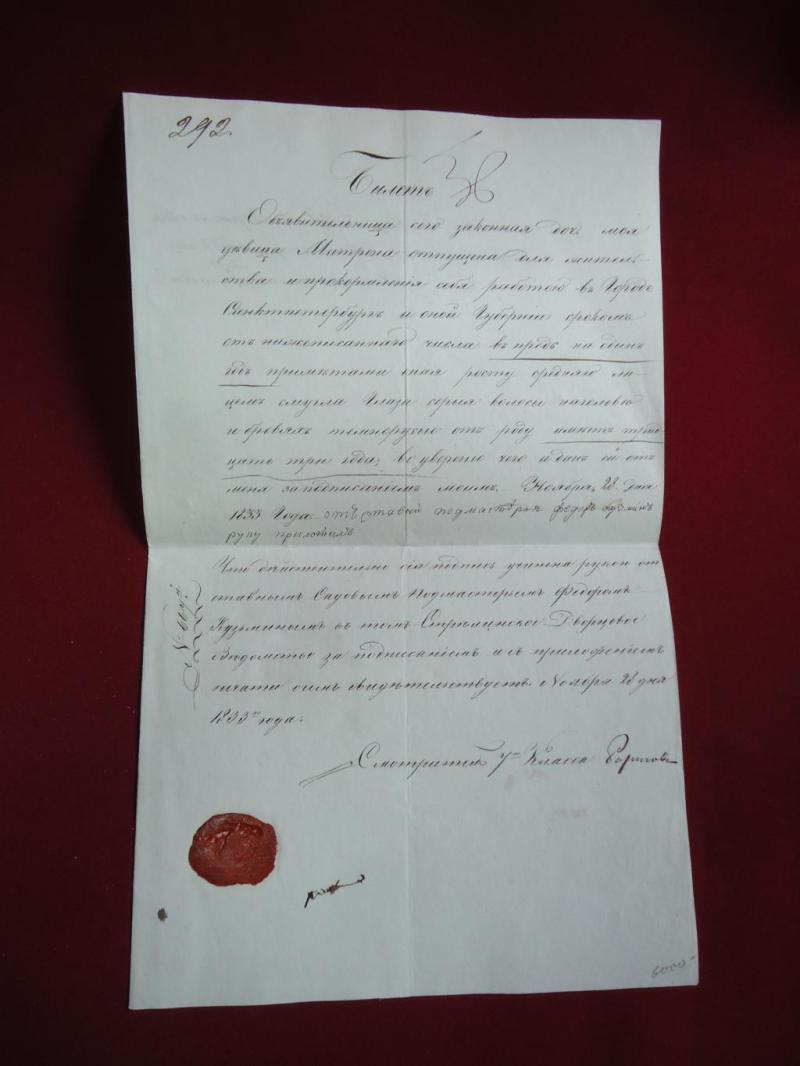 292.
Билетъ
Объявительница сего законная дочь моя
девица Матрона отпущена для житель
ства и прокормленія себя работою въ Городе
Санктпетербурге и оной Губерніи срокомъ
отъ нижеписаннаго числа въ предь на одинъ
годъ приметами оная росту средняго ли
цемъ смугла Глаза серыя волосы наголове
и бровяхъ темнорусыя отъ роду имеетъ трид
цать три года; во уверение чего и данъ ей отъ
меня заподписаніемъ моимъ. Ноября 28 дня
1833 Года. отъставной подмастерья федоръ кузминъ
руку приложилъ
Что действительно сія подпись учинена рукою от
ставнымъ Садовымъ Подмастерьемъ Федоромъ
Кузминымъ въ томъ Стрелинское Дворцовое
Ведомство за подписаніемъ и съ приложеніемъ
печати симъ свидетельствуетъ. Ноября 28 дня
1833го года.
Смотритель Класса
6000-